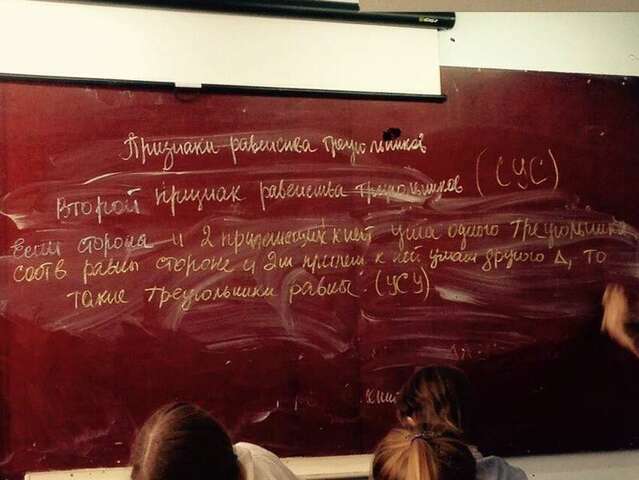 Признаки равенства треугольников
Второй признак равенства треугольников (СУС)
Если сторона и 2 прилежащих к ней угла одного треугольника
соотв равны стороне и 2м прилеж к ней углам другого Δ, то
такие треугольники равны (УСУ)